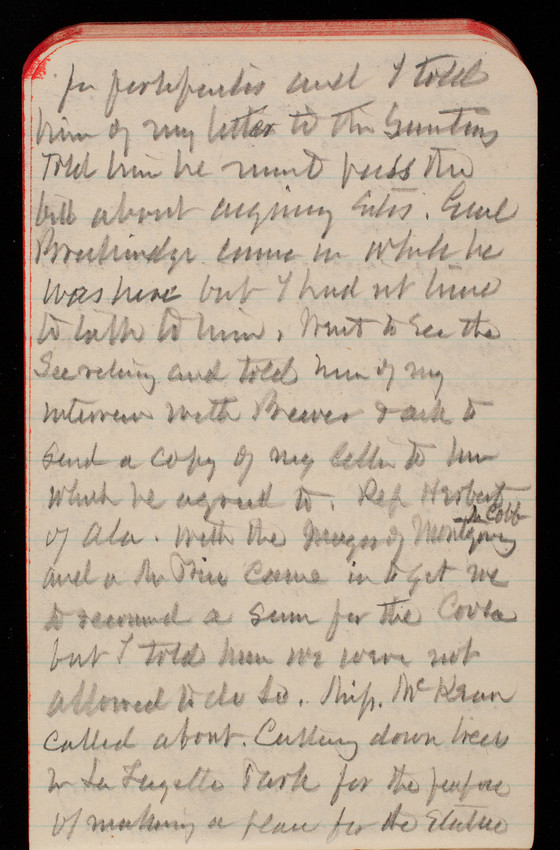 for and I told
him of my letter to the
Told him he must pass the
bill about sites. Genl
Breckinridge came in while he
was here but I had not time
to talk to him. Went to see the
Secretary and told him of my
interview with Brewer & ask to
send a copy of my letter to him
which he agreed to. Rep Herbert
Mr Cobb
of Ala. with the Mayor of Montgomery
and a Mr came in to get me
to recommend a sum for the Coosa
but I told him we were not
allowed to do so. Mr Kean
called about. Cutting down trees
in La Fayette Park for the purpose
of making a place for the Statue